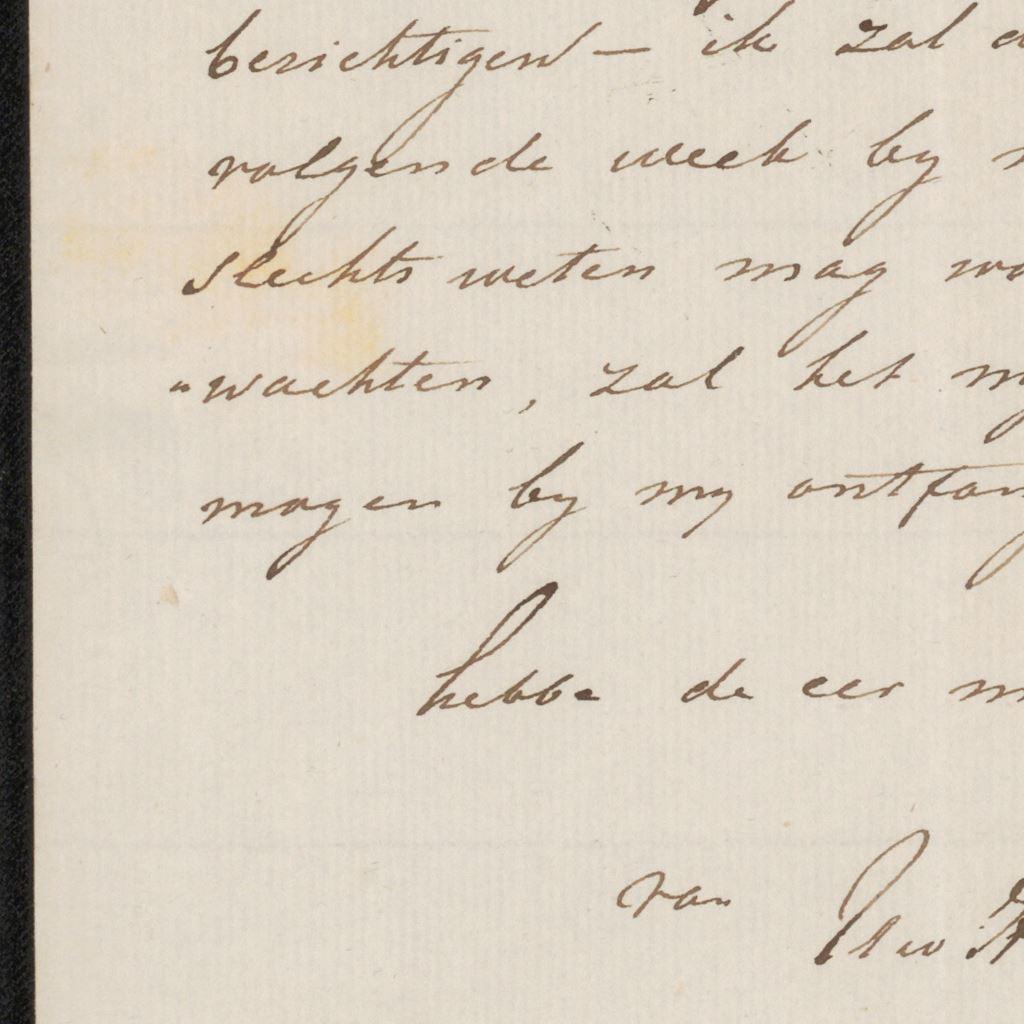 bezichtigen — ik zal
volgende week by
slechts weten mag
„wachten, zal het
mogen by my
hebbe de eer
van Uw